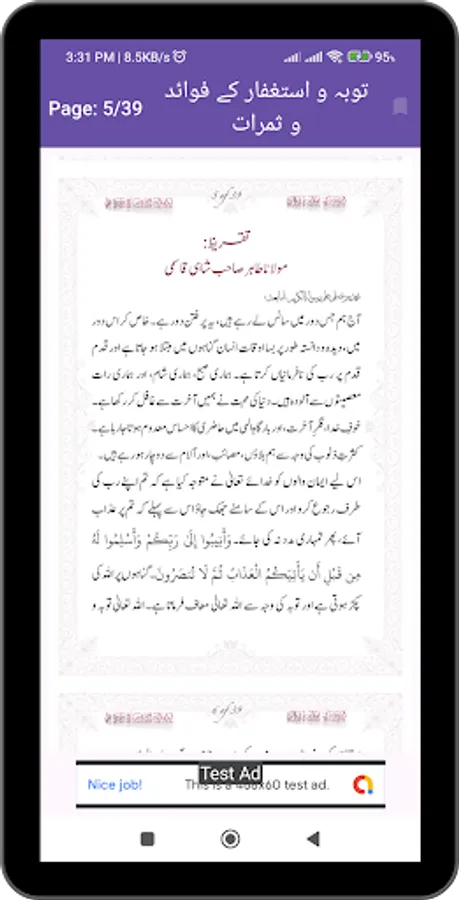 3:31 PM | 8.5KB/s 95%
Page: 5/39
توبہ و استغفار کے فوائد
و ثمرات
5 of 39
تقریظ:
مولانا طاہر صاحب شاہی قاسمی
آج ہم جس دور میں سانس لے رہے ہیں، یہ پر فتن دور ہے۔ خاص کر اس دور
میں، دیدہ و دانستہ طور پر بسا اوقات انسان گناہوں میں مبتلا ہو جاتا ہے اور قدم
قدم پر رب کی نافرمانیاں کرتا ہے۔ ہماری صبح، ہماری شام، اور ہماری رات
معصیتوں سے آلودہ ہیں۔ دنیا کی محبت نے ہمیں آخرت سے غافل کر رکھا ہے۔
خوفِ خدا، فکرِ آخرت، اور بارگاہ الٰہی میں حاضری کا احساس معدوم ہوتا جا رہا ہے۔
کثرتِ ذنوب کی وجہ سے ہم بلاؤں، مصائب، اور آلام سے دوچار ہو رہے ہیں۔
اس لیے ایمان والوں کو خدائے تعالیٰ نے متوجہ کیا ہے کہ تم اپنے رب کی
طرف رجوع کرو اور اس کے سامنے جھک جاؤ اس سے پہلے کہ تم پر عذاب
آئے، پھر تمہاری مدد نہ کی جائے۔ وَأَنِيبُوا إِلَىٰ رَبِّكُمْ وَأَسْلِمُوا لَهُ
مِن قَبْلِ أَن يَأْتِيَكُمُ الْعَذَابُ ثُمَّ لَا تُنصَرُونَ۔ گناہوں پر اللہ کی
پکڑ ہوتی ہے اور توبہ کی وجہ سے اللہ تعالیٰ معاف فرماتا ہے۔ اللہ تعالیٰ توبہ و
6 of 39
Test Ad
Nice job! This is a 468x60 test ad.